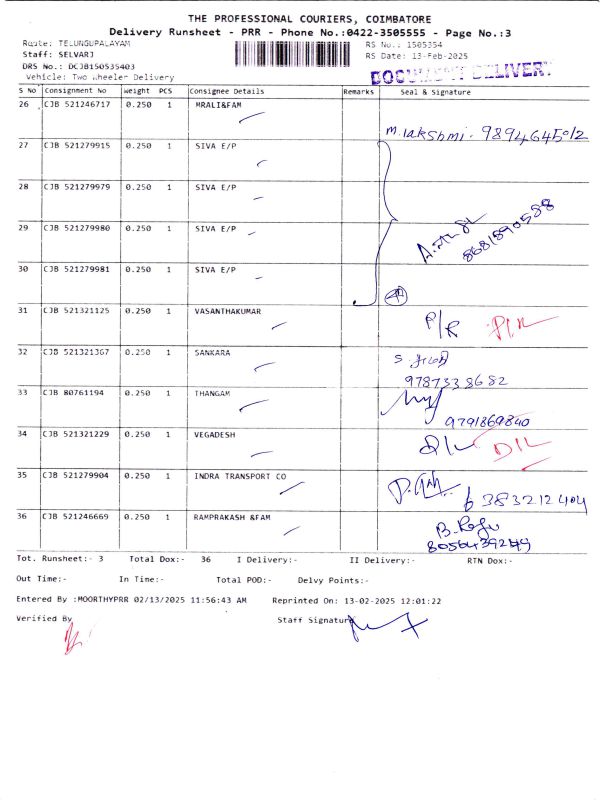 THE PROFESSIONAL COURIERS, COIMBATORE
Delivery Runsheet - PRR - Phone No.:0422-3505555 - Page No.:3
Route: TELUNGUPALAYAM RS No.: 1505354
Staff: SELVARJ RS Date: 13-Feb-2025
DRS No.: DCJB150535403
Vehicle: Two Wheeler Delivery
DOCUMENT DELIVERY
S No Consignment No Weight PCS Consignee Details Remarks Seal & Signature
26 CJB 521246717 0.250 1 MRALI&FAM
M.lakshmi. 9894645012
27 CJB 521279915 0.250 1 SIVA E/P
28 CJB 521279979 0.250 1 SIVA E/P
29 CJB 521279980 0.250 1 SIVA E/P
8681890588
30 CJB 521279981 0.250 1 SIVA E/P
31 CJB 521321125 0.250 1 VASANTHAKUMAR
P/R P/R
32 CJB 521321367 0.250 1 SANKARA
9787338682
33 CJB 80761194 0.250 1 THANGAM
9791869840
34 CJB 521321229 0.250 1 VEGADESH
D/L D/L
35 CJB 521279904 0.250 1 INDRA TRANSPORT CO
6383212404
36 CJB 521246669 0.250 1 RAMPRAKASH &FAM
B. Raju
8056439249
Tot. Runsheet:- 3 Total Dox:- 36 I Delivery:- II Delivery:- RTN Dox:-
Out Time:- In Time:- Total POD:- Delvy Points:-
Entered By :MOORTHYPRR 02/13/2025 11:56:43 AM Reprinted On: 13-02-2025 12:01:22
Verified By Staff Signature